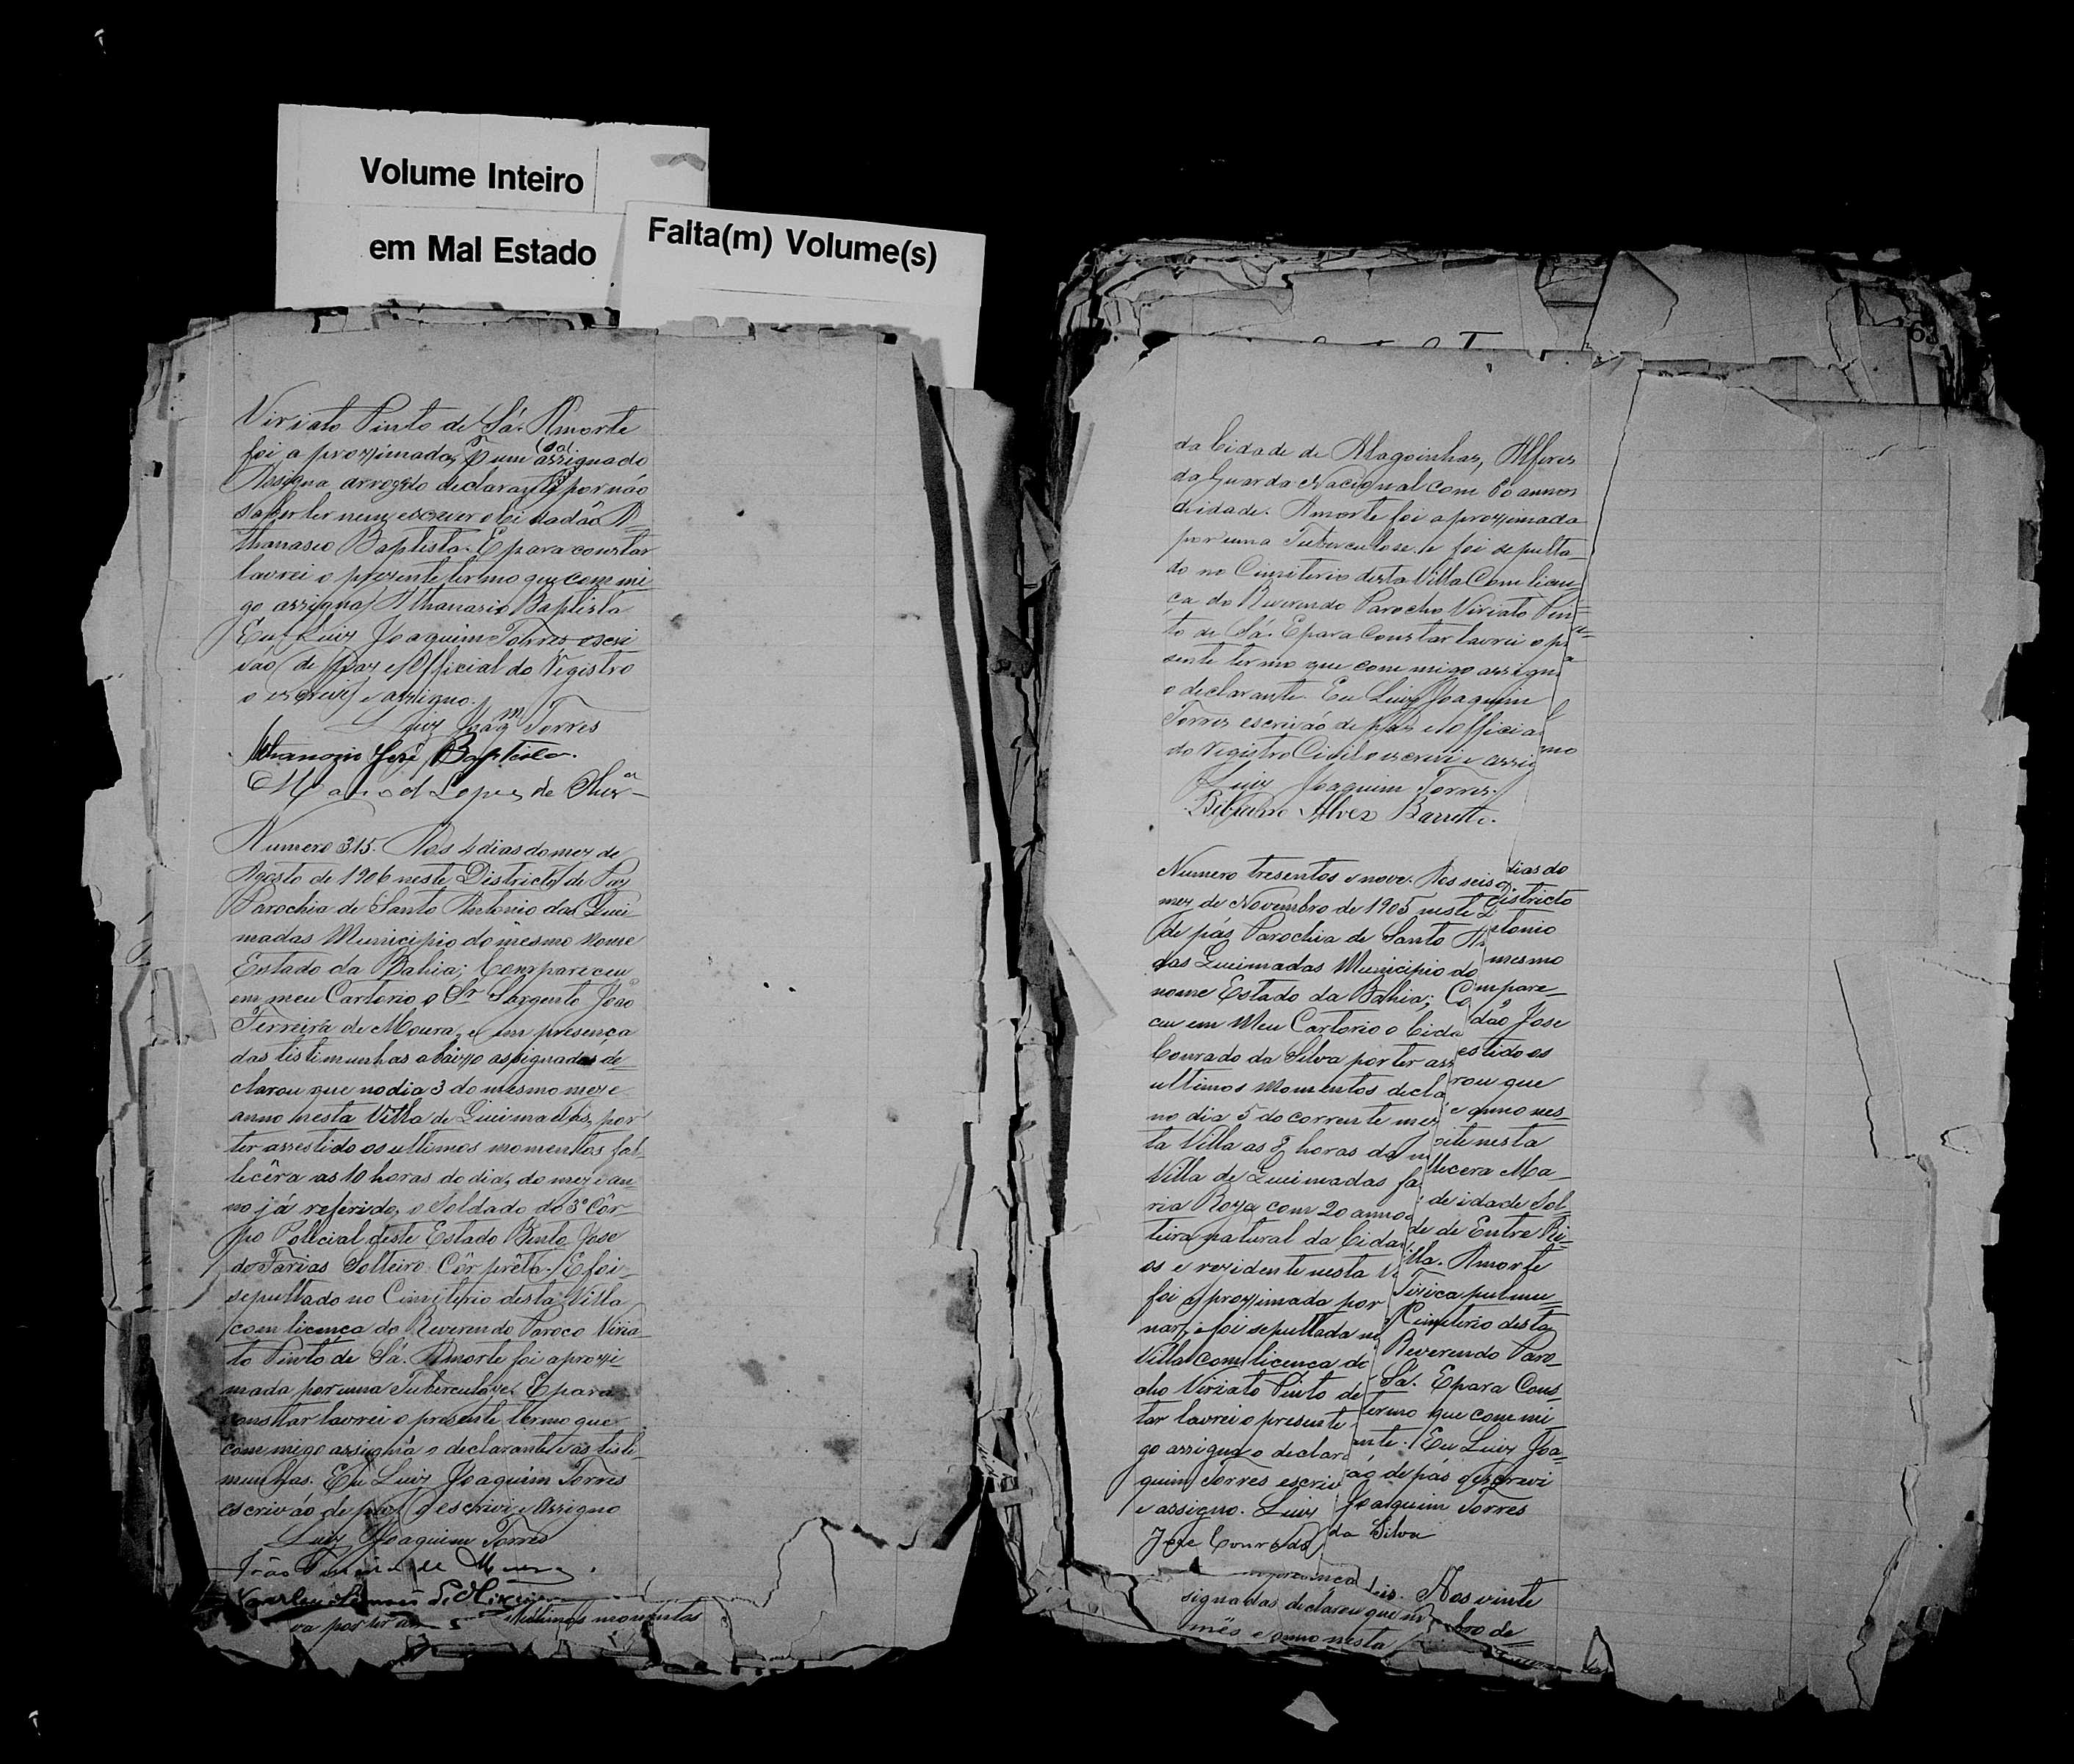 Volume Inteiro
em Mal Estado
Falta(m) Volume(s)
Viriato Pinto de Sá. A morte
foi aproximada, p um assignado
Assigna arrogo do declarante por não
saber ler nem escrever o Cidadão A=
thanasio Baptista. E para constar
lavrei o prezente termo que com mi
go assigna Athanasio Baptista
Eu Luiz Joaquim Torres escri
vão de paz e Official do Registro
o escrevi e assigno.
Luiz Joaqm Torres
Athanazio José Baptista.
Manoel Lopes de
Numero 315. Aos 4 dias do mez de
Agosto de 1906 neste Districto de Paz
Parochia de Santo Antonio das Quei
madas Municipio do mesmo nome
Estado da Bahia; Compareceu
em meu Cartorio o Sr Sargento João
Ferreira de Moura, e em presença
das tistimunhas abaixo assignadas de=
clarou que no dia 3 do mesmo mez e
anno nesta Villa de Queimadas, por
ter assestido os ultimos momentos fal=
lecêra as 10 horas do dia, do mez e an=
no já referido, o Soldado do 3º Côr=
po Policial deste Estado Bento José
de Farias Solteiro Côr prêta. E foi
sepultado no Cimiterio desta Villa
com licença do Reverendo Paroco Viria
to Pinto de Sá. A morte foi aproxi=
mada por uma Tuberculoze. E para
constar lavrei o presente termo que
commigo assigna o declarante e as tisti=
munhas. Eu Luiz Joaquim Torres
escrivão de paz o escrivi e Assigno
Luiz Joaquim Torres
João Ferreira de Moura
va por ter as ultimos momentos
63
da Cidade de Alagoinhas, Alferes
da Guarda Nacional com 60 annos
de idade. A morte foi aproximada
por uma Tuberculose e foi sepulta=
do no Cimiterio desta Villa Com licen=
ça do Reverendo Parocho Viriato Pin=
to de Sá. E para Constar lavrei o pre=
sente termo que commigo assigna
o declarante. Eu Luiz Joaquim
Torres escrivão de paz e Official
do Registro Civil o escrevi e assigno
Luiz Joaquim Torres.
Bibiano Alves Barretto.
Numero tresentos e nove. Aos seis dias do
mez de Novembro de 1905 neste Districto
de pás Parochia de Santo Antonio
das Queimadas Municipio do mesmo
nome Estado da Bahia; Compare=
ceu em Meu Cartorio o Cidadão José
Conrado da Silva por ter assestido os
ultimos momentos declarou que
no dia 5 do corrente mez e anno nes=
ta Villa as 8 horas da noite nesta
Villa de Queimadas fallecera Ma=
ria Roza, com 20 annos de idade Sol=
teira, natural da Cidade de Entre Ri=
os e rezidente nesta Villa. A morte
foi aproximada por Tizica pulmu=
nar, e foi sepultada no Cimiterio desta
Villa com licença do Reverendo Paro=
cho Viriato Pinto de Sá. E para Cons=
tar lavrei o presente termo que commi
go assigna o declarante. Eu Luiz Joa=
quim Torres escrivão de pás o escrevi
e assigno. Luiz Joaquim Torres
José Conrado da Silva
Aos vinte
signadas declarou que
bro de
mês e anno nesta